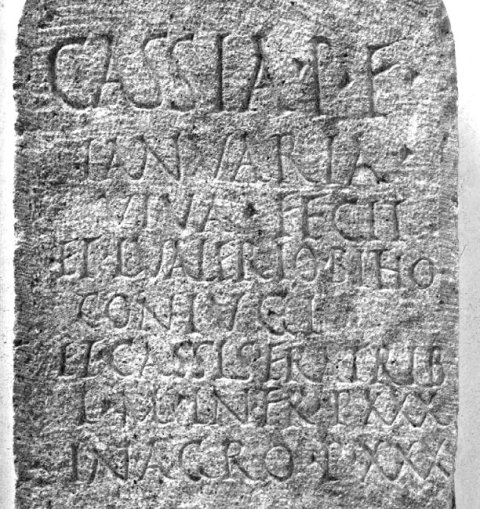 CASSIA·P·F·
IANVARIA·
VIVA·FECIT
ET·L·VALERIO·BITHO
CONIVGI
ET·CASSIS·FRATRIB
L·M·IN·FR·P·XXX
IN·AGRO·P·XXX